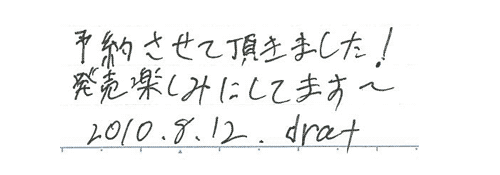 予約させて頂きました!
発売楽しみにしてます~
2010.8.12. drat